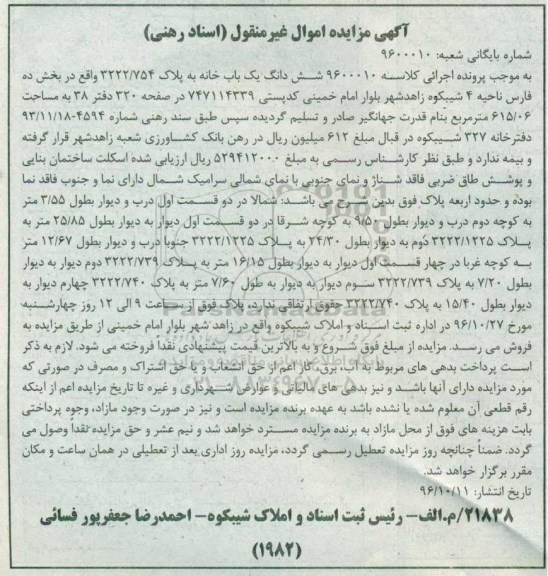 آگهی مزایده اموال غیرمنقول (اسناد رهنی)
شماره بایگانی شعبه: ۹۶۰۰۰۱۰
به موجب پرونده اجرائی کلاسه ۹۶۰۰۰۱۰ شش دانگ یک باب خانه به پلاک ۳۲۲۲/۷۵۴ واقع در بخش ده
فارس ناحیه ۴ شیبکوه زاهدشهر بلوار امام خمینی کدپستی ۷۴۷۱۱۴۳۳۹ در صفحه ۳۲۰ دفتر ۳۸ به مساحت
۶۱۵/۰۶ مترمربع بنام قدرت جهانگیر صادر و تسلیم گردیده سپس طبق سند رهنی شماره ۴۵۹۴-۹۳/۱۱/۱۸
دفترخانه ۳۲۷ شیبکوه در قبال مبلغ ۶۱۲ میلیون ریال در رهن بانک کشاورزی شعبه زاهدشهر قرار گرفته
و بیمه ندارد و طبق نظر کارشناس رسمی به مبلغ ۵۲۹۴۱۲۰۰۰ ریال ارزیابی شده اسکلت ساختمان بنایی
و پوشش طاق ضربی فاقد شناژ و نمای جنوبی با نمای شمالی سرامیک شمال دارای نما و جنوب فاقد نما
بوده و حدود اربعه پلاک فوق بدین شرح می باشد: شمالا در دو قسمت اول درب و دیوار بطول ۳/۵۵ متر
به کوچه دوم درب و دیوار بطول ۹/۵۰ به کوچه شرقا در دو قسمت اول دیوار به دیوار بطول ۲۵/۸۵ متر به
پلاک ۳۲۲۲/۱۲۲۵ دوم به دیوار بطول ۲۴/۳۰ به پلاک ۳۲۲۲/۱۲۲۵ جنوبا درب و دیوار بطول ۱۲/۶۷ متر
به کوچه غربا در چهار قسمت اول دیوار به دیوار بطول ۱۶/۱۵ متر به پلاک ۳۲۲۲/۷۳۹ دوم دیوار به دیوار
بطول ۷/۲۰ به پلاک ۳۲۲۲/۷۳۹ سوم دیوار به دیوار به طول ۷/۶۰ متر به پلاک ۳۲۲۲/۷۴۰ چهارم دیوار به
دیوار بطول ۱۵/۴۰ به پلاک ۳۲۲۲/۷۴۰ حقوق ارتفاقی ندارد، پلاک فوق از ساعت ۹ الی ۱۲ روز چهارشنبه
مورخ ۹۶/۱۰/۲۷ در اداره ثبت اسناد و املاک شیبکوه واقع در زاهد شهر بلوار امام خمینی از طریق مزایده به
فروش می رسد. مزایده از مبلغ فوق شروع و به بالاترین قیمت پیشنهادی نقداً فروخته می شود. لازم به ذکر
است پرداخت بدهی های مربوط به آب، برق، گاز اعم از حق انشعاب و یا حق اشتراک و مصرف در صورتی که
مورد مزایده دارای آنها باشد و نیز بدهی های مالیاتی و عوارض شهرداری و غیره تا تاریخ مزایده اعم از اینکه
رقم قطعی آن معلوم شده یا نشده باشد به عهده برنده مزایده است و نیز در صورت وجود مازاد، وجوه پرداختی
بابت هزینه های فوق از محل مازاد به برنده مزایده مسترد خواهد شد و نیم عشر و حق مزایده نقداً وصول می
گردد. ضمناً چنانچه روز مزایده تعطیل رسمی گردد، مزایده روز اداری بعد از تعطیلی در همان ساعت و مکان
مقرر برگزار خواهد شد.
تاریخ انتشار: ۹۶/۱۰/۱۱
۲۱۸۳۸/م.الف- رئیس ثبت اسناد و املاک شیبکوه- احمدرضا جعفرپور فسائی
(۱۹۸۲)